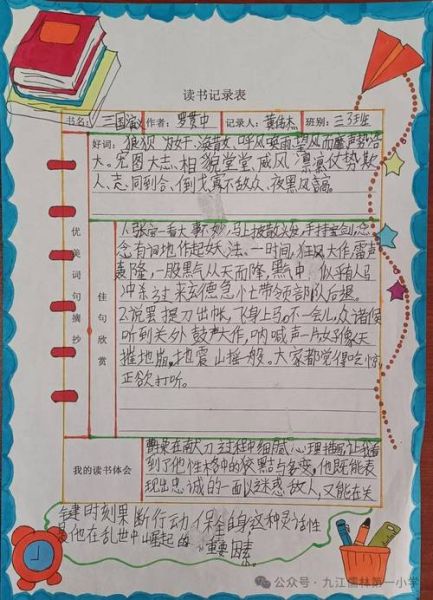 读书记录表
书名: 三国演义 作者: 罗贯中 记录人: 黄伟杰 班别: 三3班
好词: 狼狈为奸、海誓 呼风唤雨 望风而 声势浩
大。宏图大志、相貌堂堂、威风凛凛 仗势欺
人、志同到合、倒戈 寡不敌众、夜黑风高
优美词句摘抄
佳句欣赏
1.张宝一看大事不妙,马上披散头发,手持宝剑,念
念有词地作起妖法。一时间,狂风大作,雷声
轰隆,一股黑气从天而降,黑气中似有人马
冲杀过来玄德急忙带领部队后退。
2.说罢提刀出帐,飞身上马。不一会儿,众诸侯
听到关外鼓声大作,呐喊声一片好像天
摧地崩,地震山摇般。大家都觉得吃惊,
正欲打听。
我的读书体会
曹操在献刀过程中细腻心理描写,让我看
到了他性格中的狡黠与多变,他既能表
现出忠诚的一面以迷惑敌人,又能在关
键时刻果断行动保全自身这种灵活性
是他在乱世中崛起的重要因素。
公众号·九江儒林第一小学